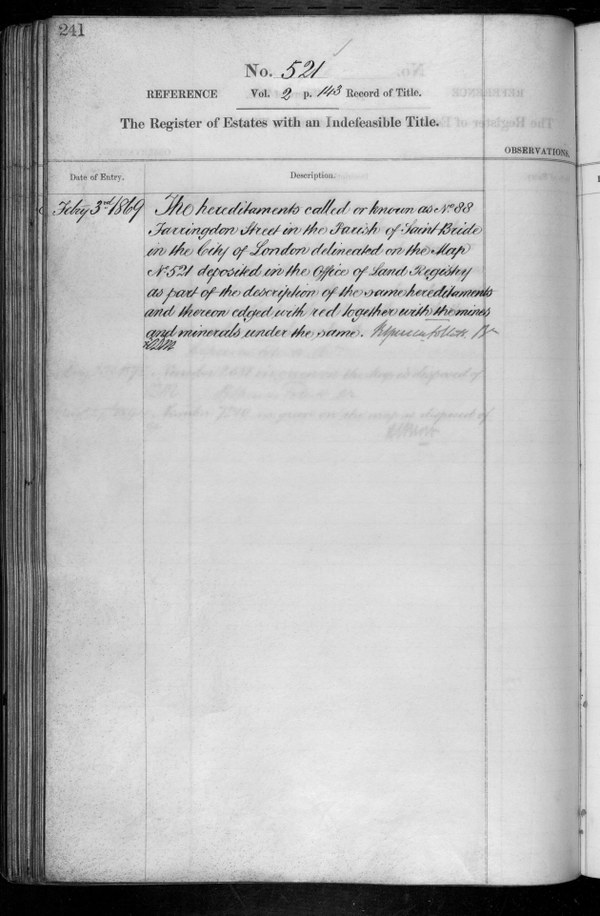 241
No. 521
REFERENCE Vol. 2 p. 143 Record of Title.
The Register of Estates with an Indefeasible Title.
OBSERVATIONS.
Date of Entry. Description.
Feby 3rd 1869 The hereditaments called or known as No. 88
Farringdon Street in the Parish of Saint Bride
in the City of London delineated on the Map
No. 521 deposited in the Office of Land Registry
as part of the description of the same hereditaments
and thereon edged with red together with the mines
and minerals under the same.